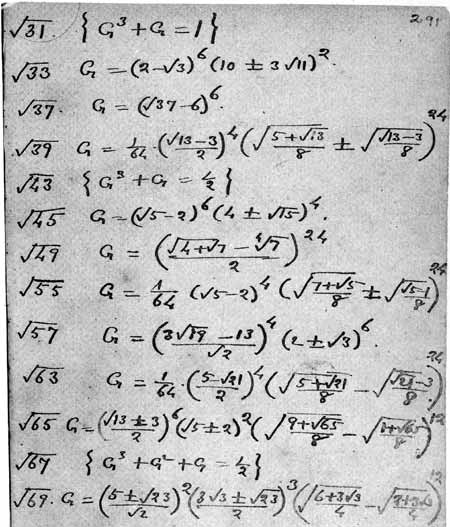 291
√31. { G³ + G = 1 }
√33 G = (2 - √3)⁶ (10 ± 3√11)².
√37. G = (√37 - 6)⁶.
√39 G = 1/64 · ((√13 - 3)/2)⁴ (√((5 + √13)/8) ± √((√13 - 3)/8))²⁴
√43 { G³ + G = 1/2 }
√45 G = (√5 - 2)⁶ (4 ± √15)⁴.
√49 G = ((√(4 + √7) - ⁴√7)/2)²⁴
√55 G = 1/64 (√5 - 2)⁴ (√((7 + √5)/8) ± √((√5 - 1)/8))²⁴
√57 G = ((3√19 - 13)/√2)⁴ (2 ± √3)⁶.
√63 G = 1/64 · ((5 - √21)/2)⁴ (√((5 + √21)/8) - √((√21 - 3)/8))²⁴
√65 G = ((√13 ± 3)/2)⁶ (√5 ± 2)² (√((9 + √65)/8) - √((1 + √65)/8))¹²
√67 { G³ + G² + G = 1/2 }
√69. G = ((5 ± √23)/√2)² (3√3 ± √23)³ (√((6 + 3√3)/4) - √(/4))¹²